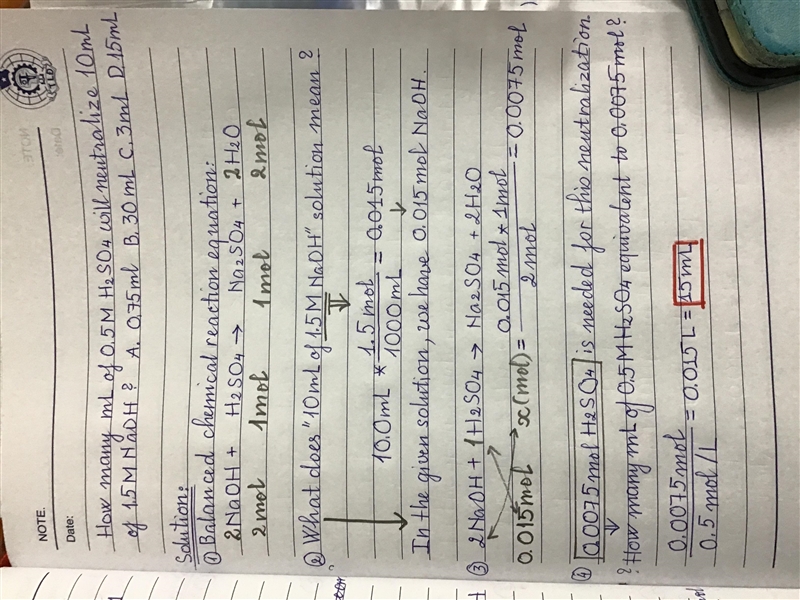 NOTE.
Date:
How many mL of 0.5M H2SO4 will neutralize 10mL
of 1.5M NaOH? A. 0,75ml B. 30 ml C. 3ml D. 15ml
Solution:
① Balanced chemical reaction equation:
2NaOH + H2SO4 → Na2SO4 + 2H2O
2mol 1mol 1mol 2mol
② What does "10mL of 1.5M NaOH" solution mean?
10.0mL * 1.5mol / 1000mL = 0.015mol
In the given solution, we have 0.015mol NaOH.
③ 2NaOH + 1H2SO4 → Na2SO4 + 2H2O
0.015mol x(mol) = 0.015mol * 1mol / 2mol = 0.0075mol
④ 0.0075mol H2SO4 is needed for this neutralization
? How many mL of 0.5M H2SO4 equivalent to 0.0075mol?
0.0075mol / 0.5mol/L = 0.015L = 15mL